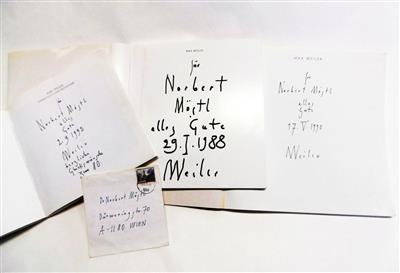 MAX WEILER
für
Norbert
Mögtl
alles
Gute
2.9.1990
Weiler
zum 80
MAX WEILER
für
Norbert
Mögtl
alles Gute
29.I.1988
Weiler
MAX WEILER
für
Norbert Mögtl
alles
Gute
17 V 1990
Weiler
Dr Norbert Mögtl
70
A-1180 WIEN